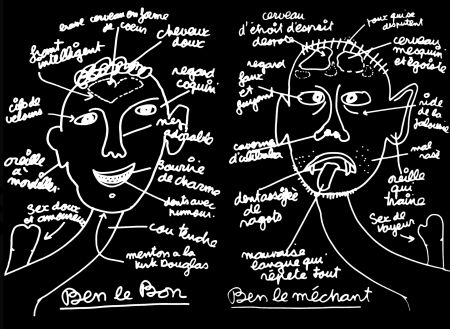 cerveau en forme
de cœur
cheveux
doux
front
intelligent
regard
coquin
cils de
velours
nez
adorable
oreille
à mordiller
sourire
de charme
dents avec
humour.
Sex doux
et amoureux
cou tendre
menton à la
Kirk Douglas
Ben le Bon
cerveau
d'étroit d'esprit
qui se
disputent
cerveau
mesquin
et égoïste
regard
faux
et
fuyant
ride
de la
jalousie
caverne
d'alibaba
mal
rasé
dent
de
ragots
oreille
qui
traine
Sex de
Voyeur
mauvaise
langue qui
répète tout
Ben le méchant